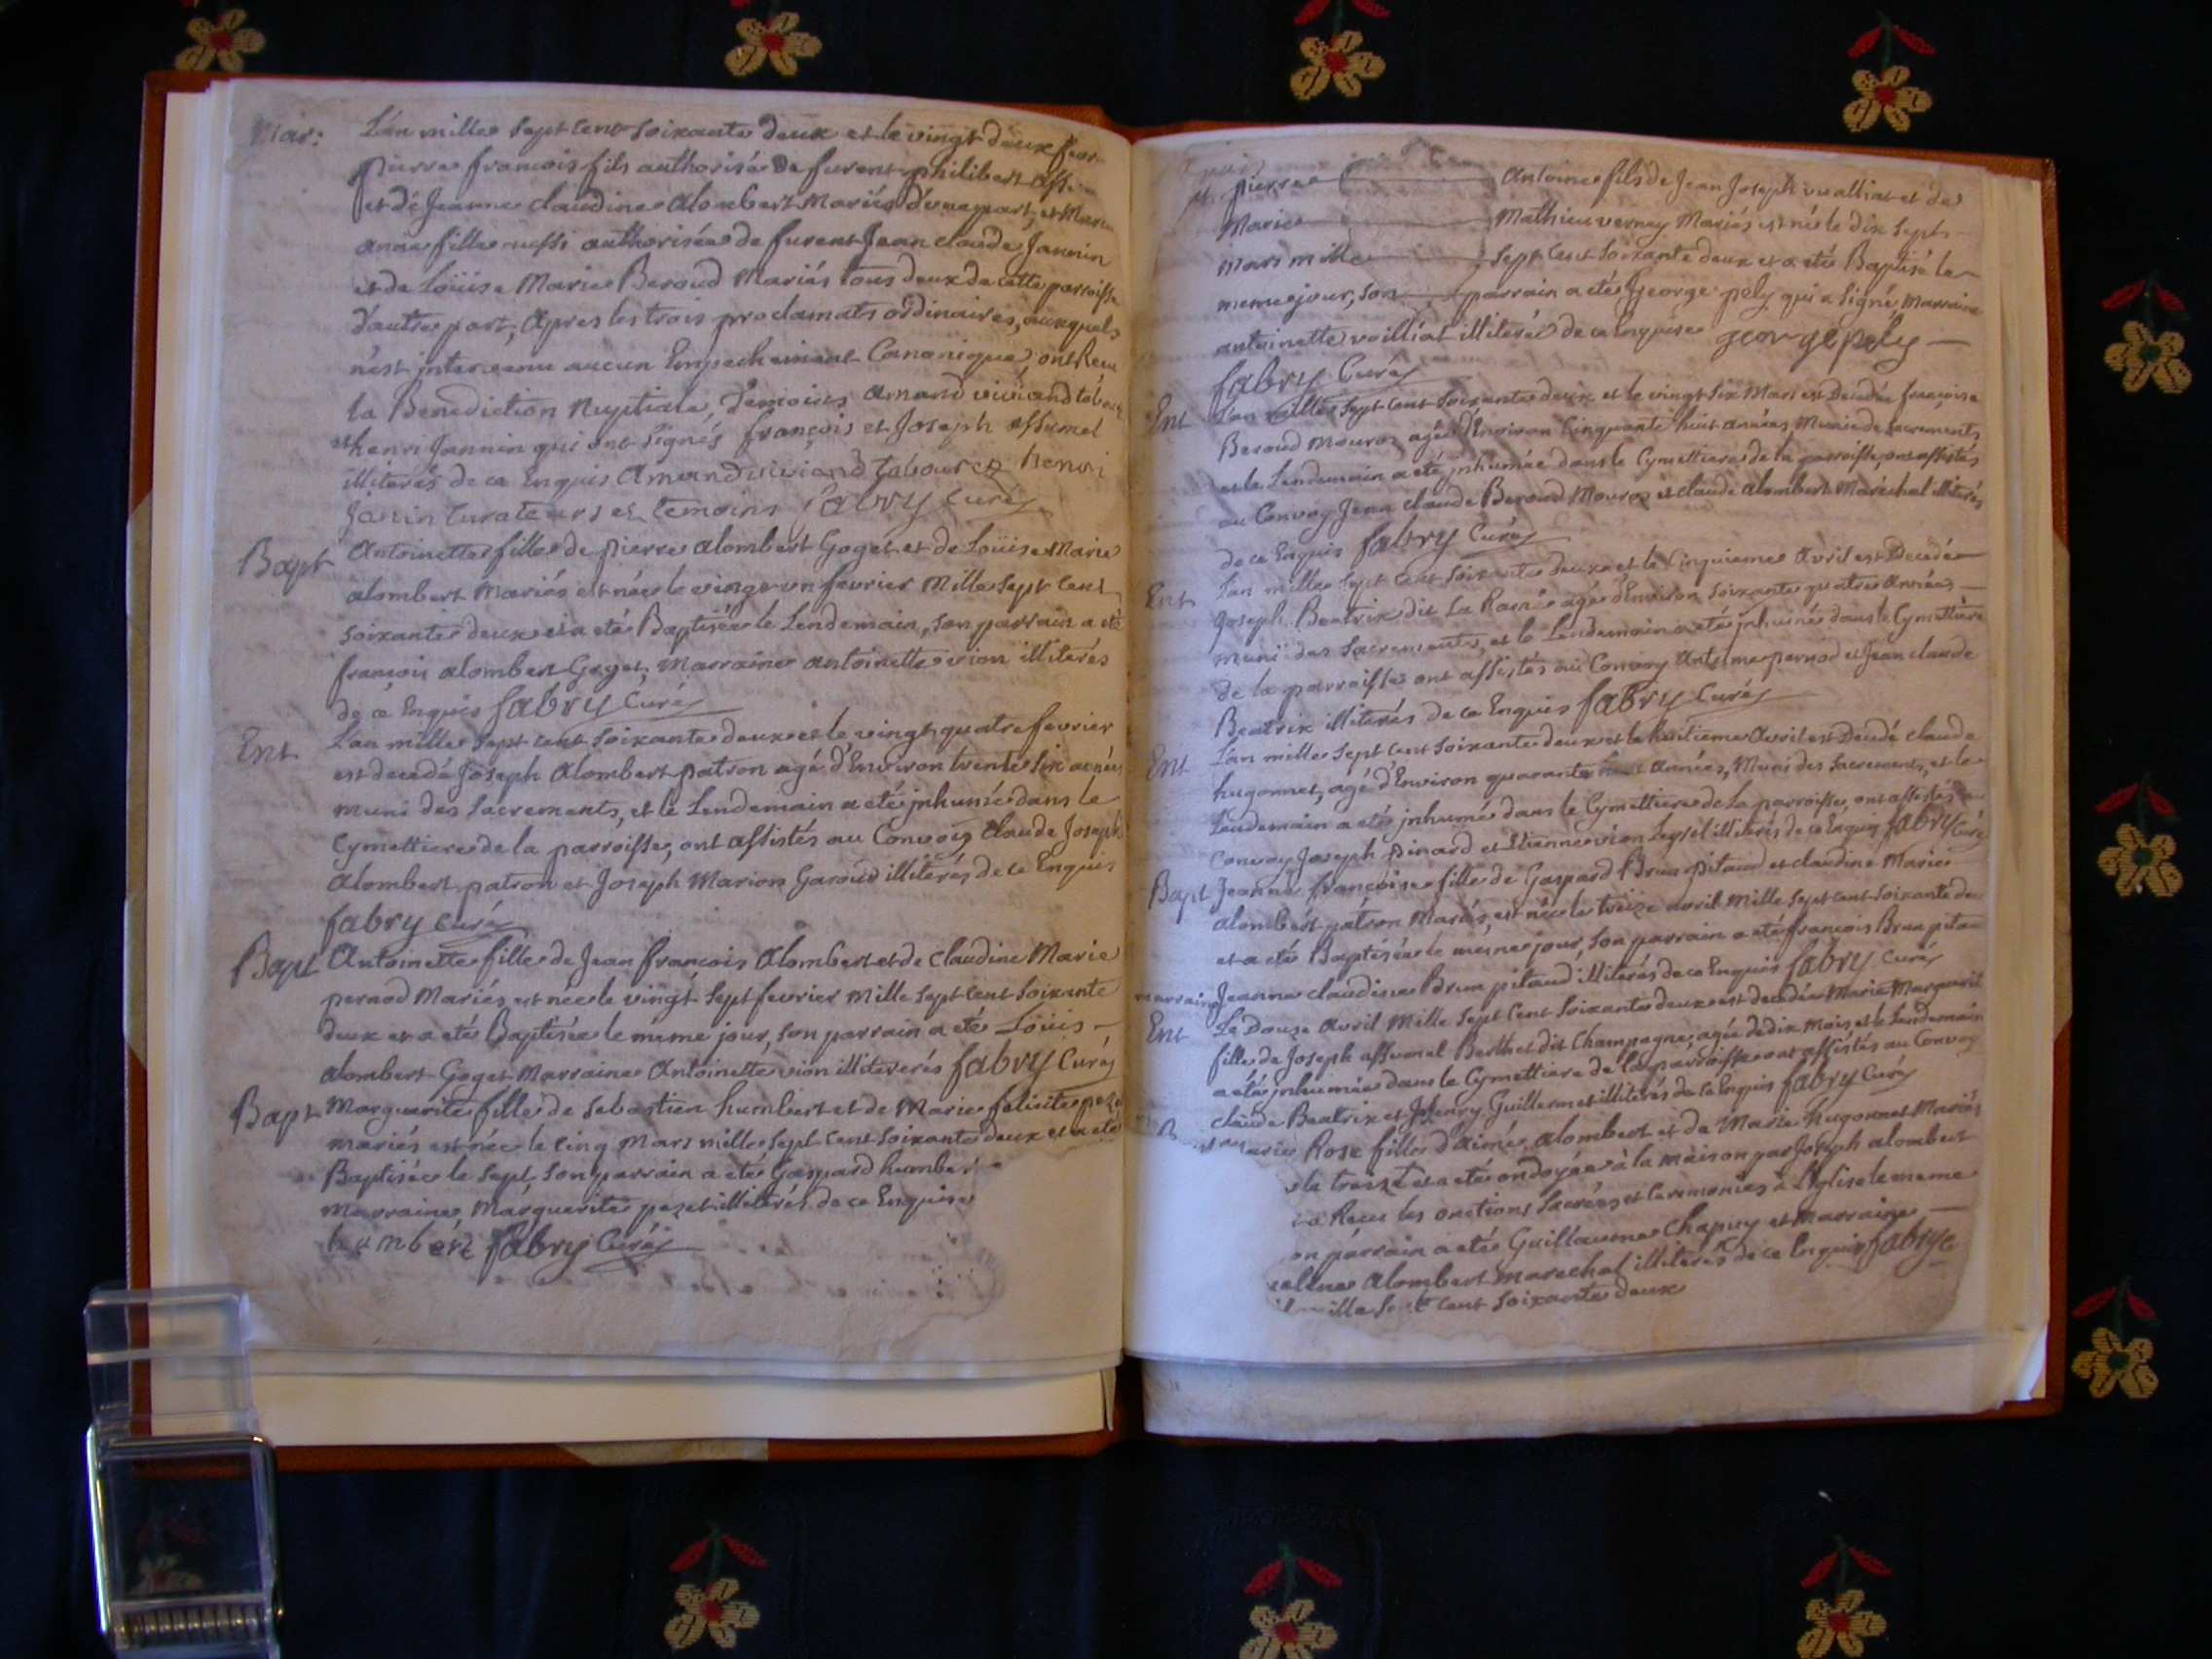 Mar: L'an mille sept cent soixante deux et le vingt deux fevr
pierre francois fils authorisé de furent philibert
et de Jeanne claudine alombert Mariés d'une part, et Marie
anne fille aussi authorisée de furent Jean claude Jannin
et de Loüise Marie Beroud Mariés tous deux de cette parroisse
d'autre part, apres les trois proclamats ordinaires, auxquels
n'est intervenu aucun Empechement Canonique, ont Receu
la Benediction Nuptiale, Temoins amand viviand
et henri Jannin qui ont signés françois et Joseph affumel
illiterés de ce Enquis amand viviand tabouret henri
janin Curateurs et temoins fabry Curé
Bapt Antoinette fille de pierre alombert Goget et de Loüise Marie
alombert Mariés est née le vingt un fevrier Mille sept cent
soixante deux et a eté Baptisée le Lendemain, son parrain a eté
francois alombert Goget, Marraine antoinette vion illiterés
de ce Enquis fabry Curé
Ent L'an mille sept cent soixante deux et le vingt quatre fevrier
est decedé Joseph Alombert patron agé d'Environ trente six années
muni des sacrements, et le Lendemain a eté jnhumé dans le
Cymettiere de la parroisse, ont assistés au Convoy Claude Joseph
Alombert patron et Joseph Marion Garoud illiterés de ce Enquis
fabry Curé
Bapt Antoinette fille de Jean francois Alombert et de Claudine Marie
pernod Mariés est née le vingt sept fevrier Mille sept cent soixante
deux et a eté Baptisée le meme jour, son parrain a eté Loüis
alombert Goget Marraine Antoinette vion illiterés fabry Curé
Bapt Marguerite fille de sebastien humbert et de Marie felicite
mariés est née le cinq Mars mille sept cent soixante deux et a eté
Baptisée le sept, son parrain a eté Gaspard humber
Marraine Marguerite pezet illiterés de ce Enquise
humbert fabry Curé
pierre Antoine fils de Jean Joseph vualliat et de
Marie Mathieu vernay Mariés est né le dix sept
Mars mille sept cent soixante deux et a eté Baptisé le
meme jour, son parrain a eté George pely qui a signé Marraine
antoinette vuilliat illiteré de ce Enquise george pely
fabry Curé
Ent L'an mille sept cent soixante deux et le vingt six Mars est Decedée françoise
Beroud Mouroz agée d'Environ Cinquante huit années Munie de sacrements
et le Lendemain a eté jnhumée dans le Cymettiere de la parroisse, ont assistés
au Convoy Jean claude Beroud Mouroz et claude alombert Maréchal illiterés
de ce Enquis fabry Curé
Ent L'an mille sept cent soixante deux et le Cinquieme Avril est Decedé
Joseph Beatrix dit La Ramé agé d'Environ soixante quatre Années
muni des sacrements, et le Lendemain a eté jnhumé dans le Cymettiere
de la parroisse ont assistés au Convoy Antelme pernod et Jean claude
Beatrix illiterés de ce Enquis fabry Curé
Ent L'an mille sept cent soixante deux et le huitieme Avril est Decedé claude
hugonnet, agé d'Environ quarante années, Muni des Sacrements, et le
Lendemain a eté jnhumé dans le Cymettiere de la parroisse, ont assistés au
Convoy Joseph pinard et Etienne vion illiterés de ce Enquis fabry Curé
Bapt Jeanne françoise fille de Gaspard Brun pitaud et claudine Marie
alombert patron Mariés, est née le treize avril Mille sept cent soixante de
et a eté Baptisée le meme jour, son parrain a eté francois Brun pitau
marraine Jeanne claudine Brun pitaud illiterés de ce Enquis fabry Curé
Ent Le Douze avril Mille sept Cent soixante deux est decedée Marie Marguerit
fille de Joseph affumel Berthet dit Champagne, agée de dix mois, et le Lendemain
a eté jnhumée dans le Cymettiere de la parroisse ont assistés au Convoy
claude Beatrix et Jhenry Guillermet illiterés de ce Enquis fabry Curé
B Marie Rose fille d'aimé alombert et de Marie hugonnet Mariés
le treize et a eté ondoyée à la maison par Joseph alombert
a Receu les onctions sacrées et Ceremonies à L'Eglise le meme
on parrain a eté Guillaume Chapuy et Marraine
alombert marechal illiterés de ce Enquis fabry c
mille sept cent soixante deux